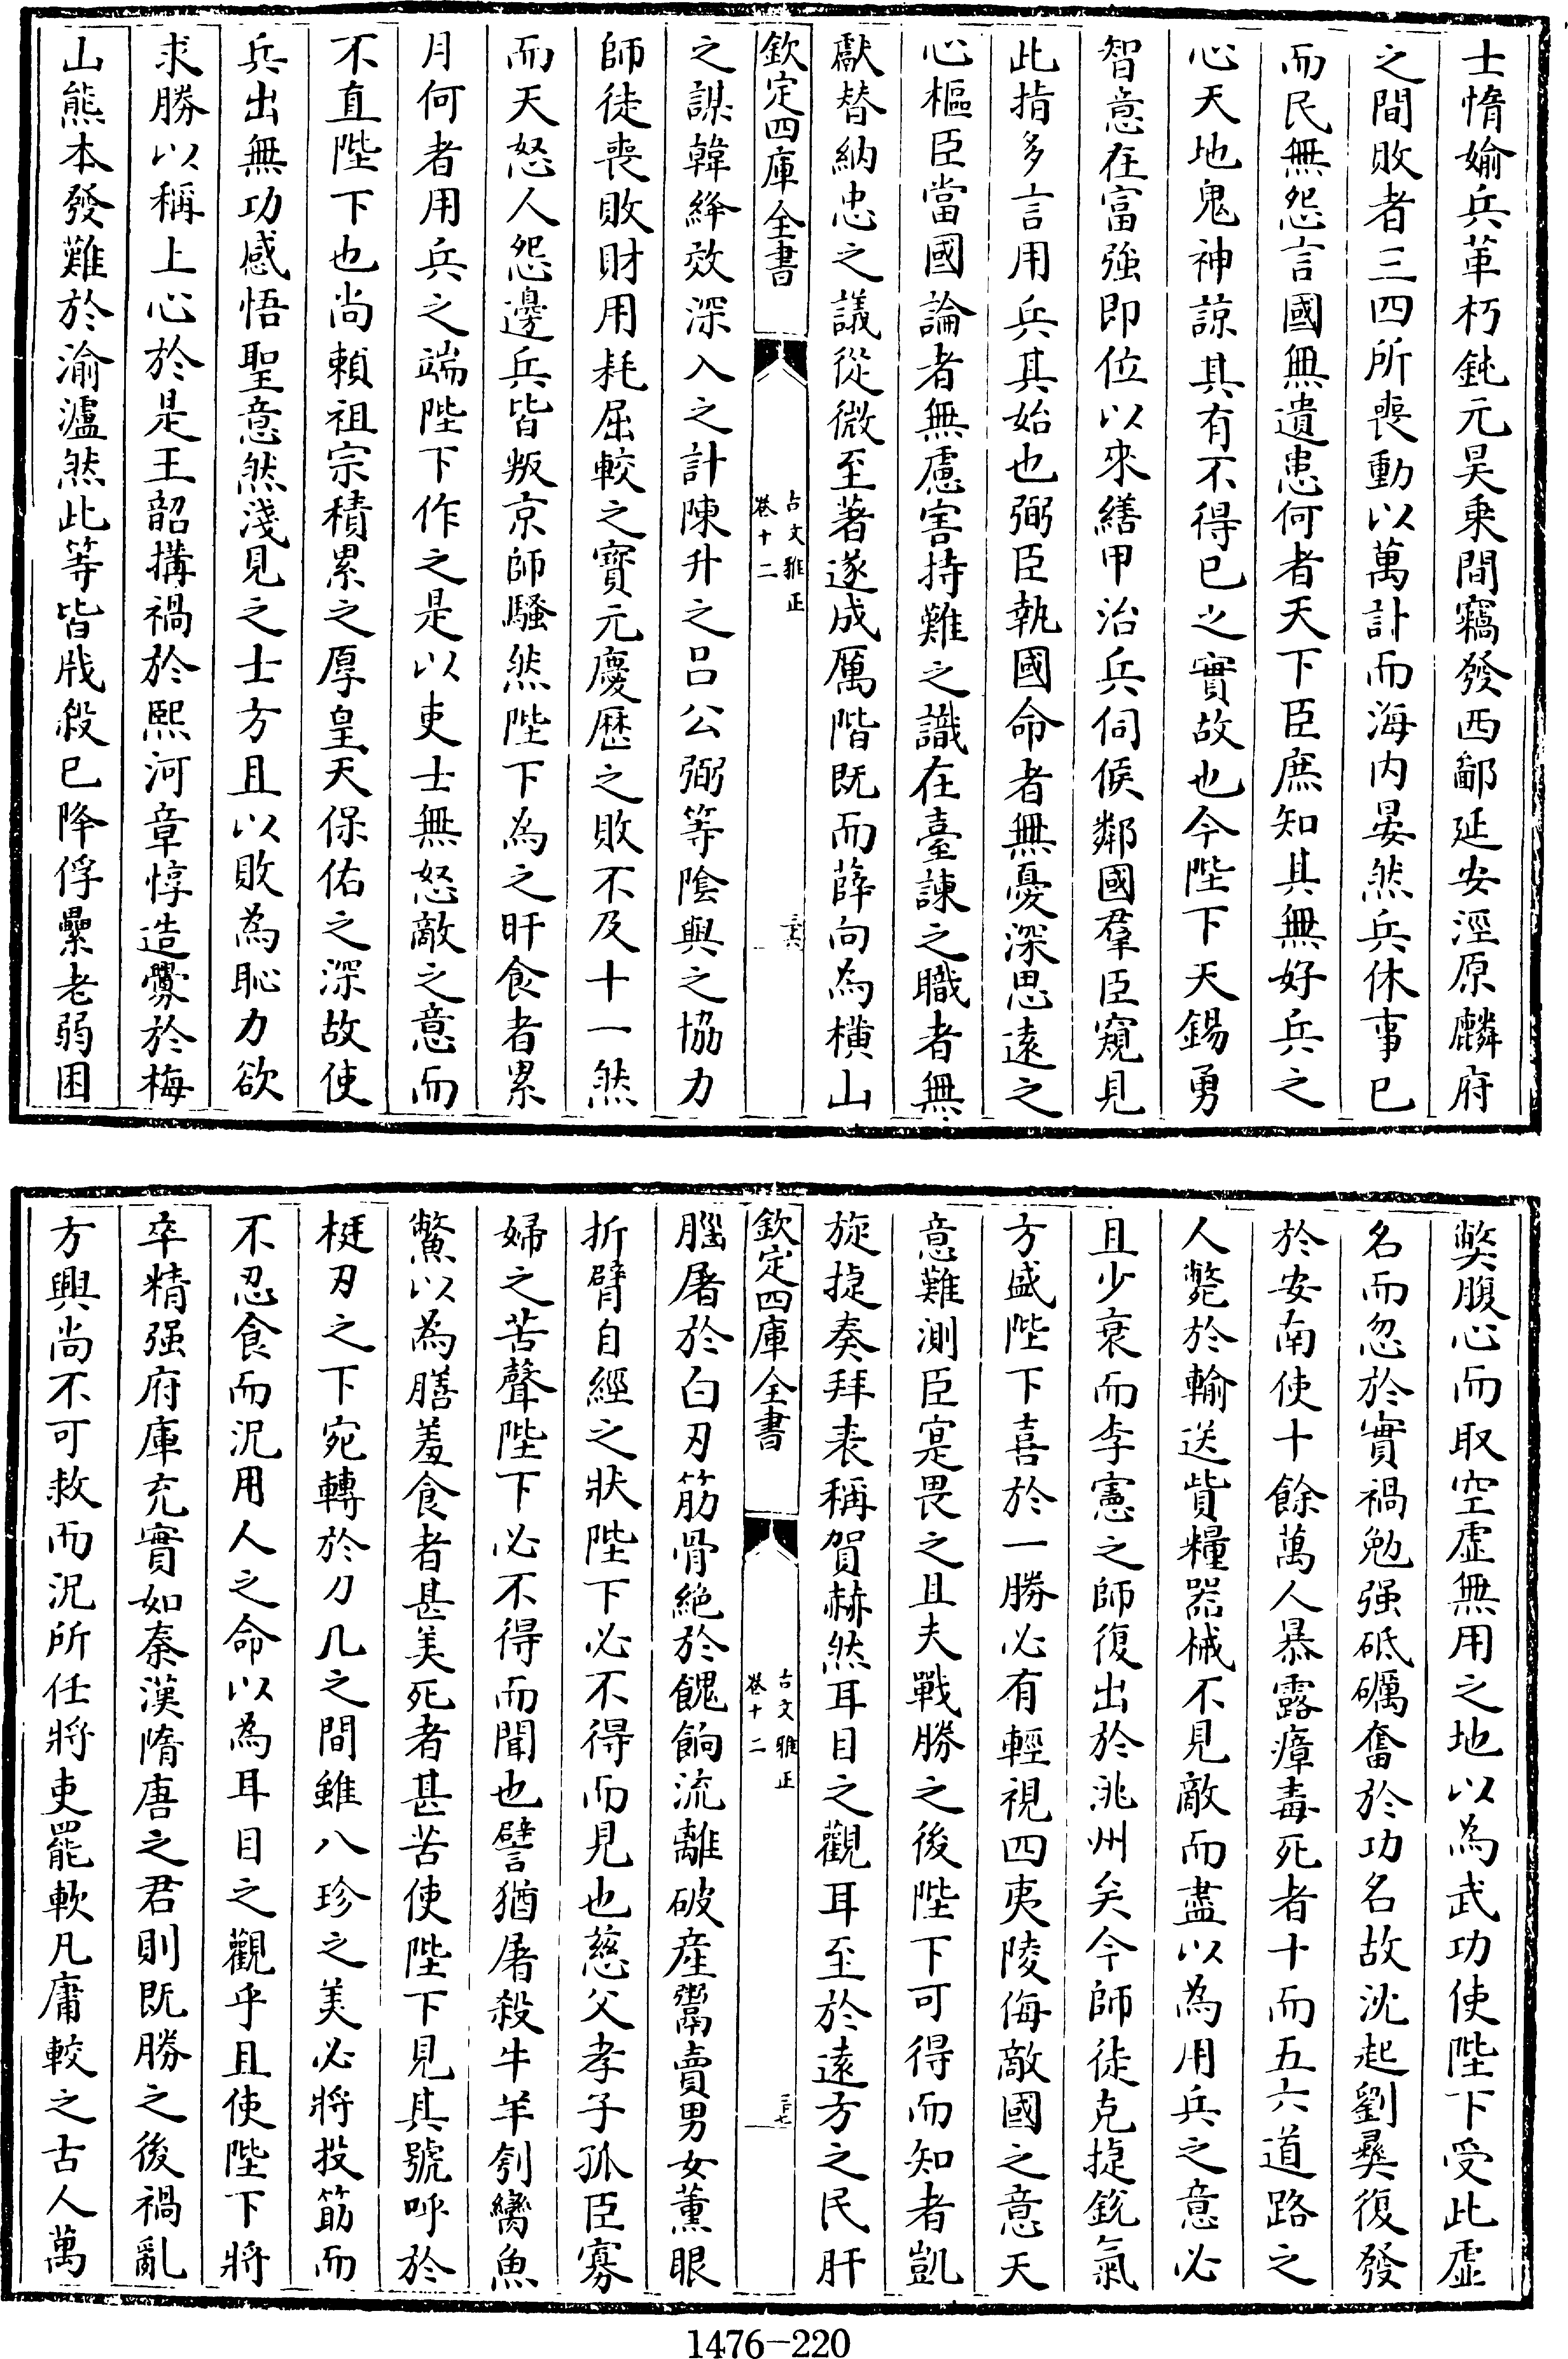 士惰媮兵革朽鈍元昊乗間竊發西鄙延安涇原麟府
之間敗者三四所喪動以萬計而海内晏然兵休事已
而民無怨言國無遺患何者天下臣庶知其無好兵之
心天地鬼神諒其有不得已之實故也今陛下天錫勇
智意在富強即位以來繕甲治兵伺候鄰國羣臣窺見
此指多言用兵其始也弼臣執國命者無憂深思遠之
心樞臣當國論者無慮害持難之識在臺諫之職者無
獻替納忠之議從微至著遂成厲階既而薛向為横山
欽定四庫全書
古文雅正
卷十二
三十六
之謀韓絳效深入之計陳升之吕公弼等隂與之協力
師徒喪敗財用耗屈較之寳元慶歴之敗不及十一然
而天怒人怨邊兵皆叛京師騷然陛下為之旰食者累
月何者用兵之端陛下作之是以吏士無怒敵之意而
不直陛下也尚頼祖宗積累之厚皇天保佑之深故使
兵出無功感悟聖意然淺見之士方且以敗為恥力欲
求勝以稱上心於是王韶搆禍於熙河章惇造釁於梅
山熊本發難於渝瀘然此等皆戕殺已降俘纍老弱困
獘腹心而取空虚無用之地以為武功使陛下受此虚
名而忽於實禍勉强砥礪奮於功名故沈起劉彛復發
於安南使十餘萬人暴露瘴毒死者十而五六道路之
人斃於輸送貲糧器械不見敵而盡以為用兵之意必
且少衰而李憲之師復出於洮州矣今師徒克捷鋭氣
方盛陛下喜於一勝必有輕視四夷陵侮敵國之意天
意難測臣寔畏之且夫戰勝之後陛下可得而知者凱
旋捷奏拜表稱賀赫然耳目之觀耳至於逺方之民肝
欽定四庫全書
古文雅正
卷十二
三十七
腦屠於白刃筋骨絶於餽餉流離破産鬻賣男女薰眼
折臂自經之狀陛下必不得而見也慈父孝子孤臣寡
婦之苦聲陛下必不得而聞也譬猶屠殺牛羊刳臠魚
鱉以為膳羞食者甚美死者甚苦使陛下見其號呼於
梃刃之下宛轉於刀几之間雖八珍之美必將投筯而
不忍食而況用人之命以為耳目之觀乎且使陛下將
卒精强府庫充實如秦漢隋唐之君則既勝之後禍亂
方興尚不可救而況所任將吏罷軟凡庸較之古人萬
1476-220